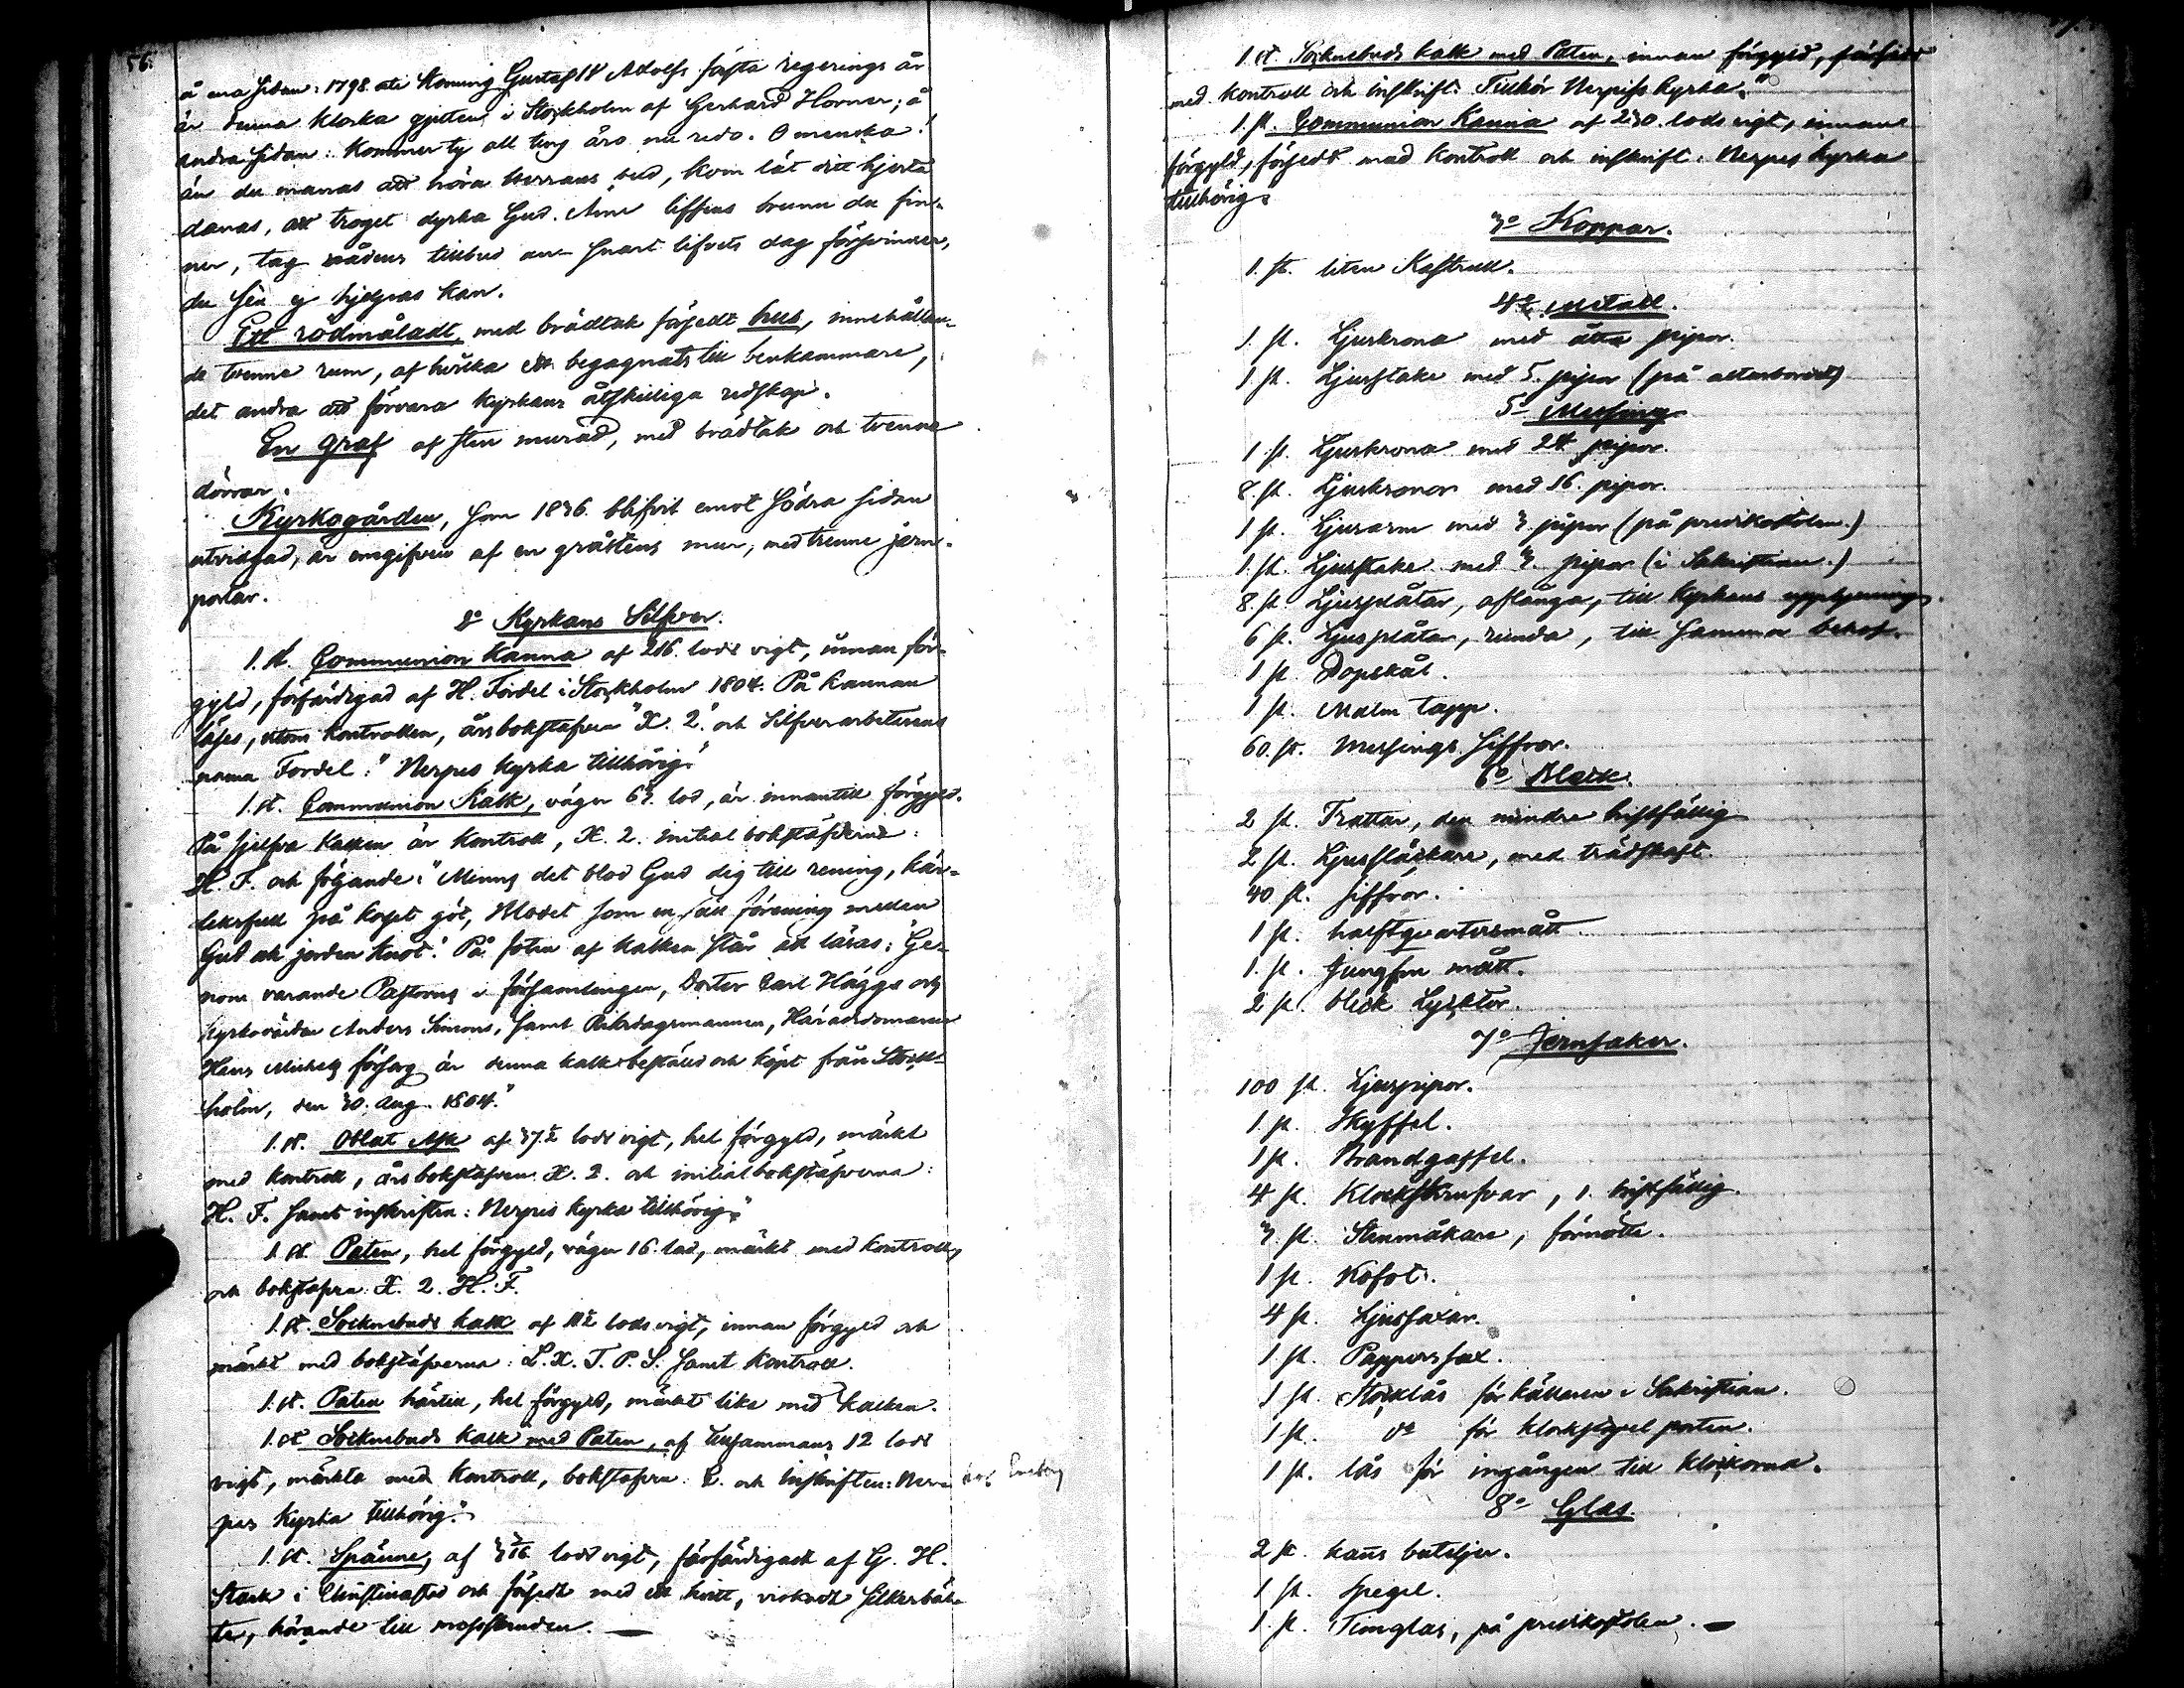 56.
å ena sidan: 1798. ate Konung Gustaf IV Adolfs sjsta regerings år
är denna klocka gjuten i Stockholm af Gerhard Horner; å
andra sidan: Kommer ty all ting äro nu redo. O menska!
än du manas att höra Herrans bud, kom låt ditt hjerta
danas, att troget dyrka Gud. Ännu lifsens brunn du fin-
ner, tag nådens tillbud an snart lifvets dag försvinner,
du sen ej hjelpas kan.
Ett rödmåladt, med brädtak försedt hus, innehållan-
de tvenne rum, af hvilka ett begagnats till benkammare,
det andra att förvara kyrkans åtskilliga redskap.
En graf af sten murad, med brädtak och tvenne
dörrar.
Kyrkogården, som 1836. blifvit emot södra sidan
utvidgad, är omgifven af en gråstens mur, med trenne jern-
portar.
2o Kyrkans Silfver.
1. st. Communion Kanna af 216. lods vigt, innan för-
gyld, förfärdigad af H. Fordel i Stockholm 1804. På kannan
läses, utom kontrollen, årsbokstafven "X. 2." och Silfverarbetarens
namn Fordel: "Nerpes kyrka tillhörig."
1. st. Communion Kalk, väger 63. lod, är innantill förgyld.
På sjelfva kalken är kontroll, X. 2. initial bokstäfverna:
H. F. och följande: "Minns det blod Gud dig till rening, kär-
leksfull på korset göt, Blodet som en säll förening mellan
Gud och jorden knöt." På foten af kalken står att läsas: "Ge-
nom varande Pastorns i församlingen, Doctor Carl Häggs och
kyrkovärden Anders Simons, samt Riksdagsmannen, Häradsdomaren
Hans Michels försorg är denna kalk bestäld och köpt från Stock-
holm, den 30. Aug. 1804."
1. st. Oblat Ask af 37.½ lods vigt, hel förgyld, märkt
med kontroll, årsbokstafven X. 2. och initialbokstäfverna:
H. F. samt inskriften: Nerpes kyrka tillhörig."
1. st. Paten, hel förgyld, väger 16. lod, märkt med kontroll,
och bokstafva: X. 2. H. F.
1. st. Socknebuds kalk af 11½ lods vigt, innan förgyld och
märkt med bokstäfverna: L. X. T. P. S. samt kontroll.
1. st. Paten härtill, hel förgyld, märkt lika med kalken.
1. st. Socknebuds kalk med Paten, af tillsammans 12 lods
vigt, märkta med kontroll, bokstafva: C. och inskriften: Ner-
pes kyrka tillhörig."
1. st. Spänne, af 3 lods vigt, förfärdigadt af G. H.
Stark i Christinæstad och försedt med ett hvitt, virkadt silkesbäl-
te, hörande till messskruden. —
1. st. Socknebuds kalk med Paten, innan förgyld, försedd
med kontroll och inskrift: Tillhör Nerpess kyrka."
1. st. Communion Kanna af 230. lods vigt, innan
förgyld, försedd med kontroll och inskrift: Nerpes kyrka
tillhörig.
3o Koppar.
1. st. liten Kastrull.
4o Metall.
1. st. Ljuskrona med åtta pipor.
1 st. Ljusstake med 5. pipor (på altarbordet)
5o Messing
1 st. Ljuskrona med 24 pipor.
8. st. Ljuskronor med 16. pipor.
1 st. Ljusarm med 3. pipor (på predikostolen.)
1. st. Ljusstake med 3. pipor (i Sakristian.)
8. st. Ljusplåtar, aflånga, till kyrkans upplysning.
6 st. Ljusplåtar, runda, till samma behof.
1 st. Dopskål.
1 st. Malm tapp.
60. st. Messings siffror.
6o Bleck.
2 st. Trattar, den mindre bristfällig
2 st. Ljussläckare, med trädskaft.
40 st. siffror.
1 st. halftqvartersmått
1. st. Jungfru mått.
2 st. bleck Lycktor.
7o Jernsaker.
100 st. Ljuspipor.
1. st. Skyffel.
1 st. Brandgaffel.
4 st. Klockskrufvar, 1. bristfällig.
3. st. Stenmåkare, förnötta.
1 st. Kofot.
4 st. Ljussaxar.
1 st. Papperssax.
1 st. Stocklås för källaren i Sakristian.
1 st. do för klockstapel porten.
1 st. lås för ingången till klockorna.
8o Glas.
2 st. kan̄s buteljer.
1 st. Spegel.
1. st. Timglas, på predikostolen. —